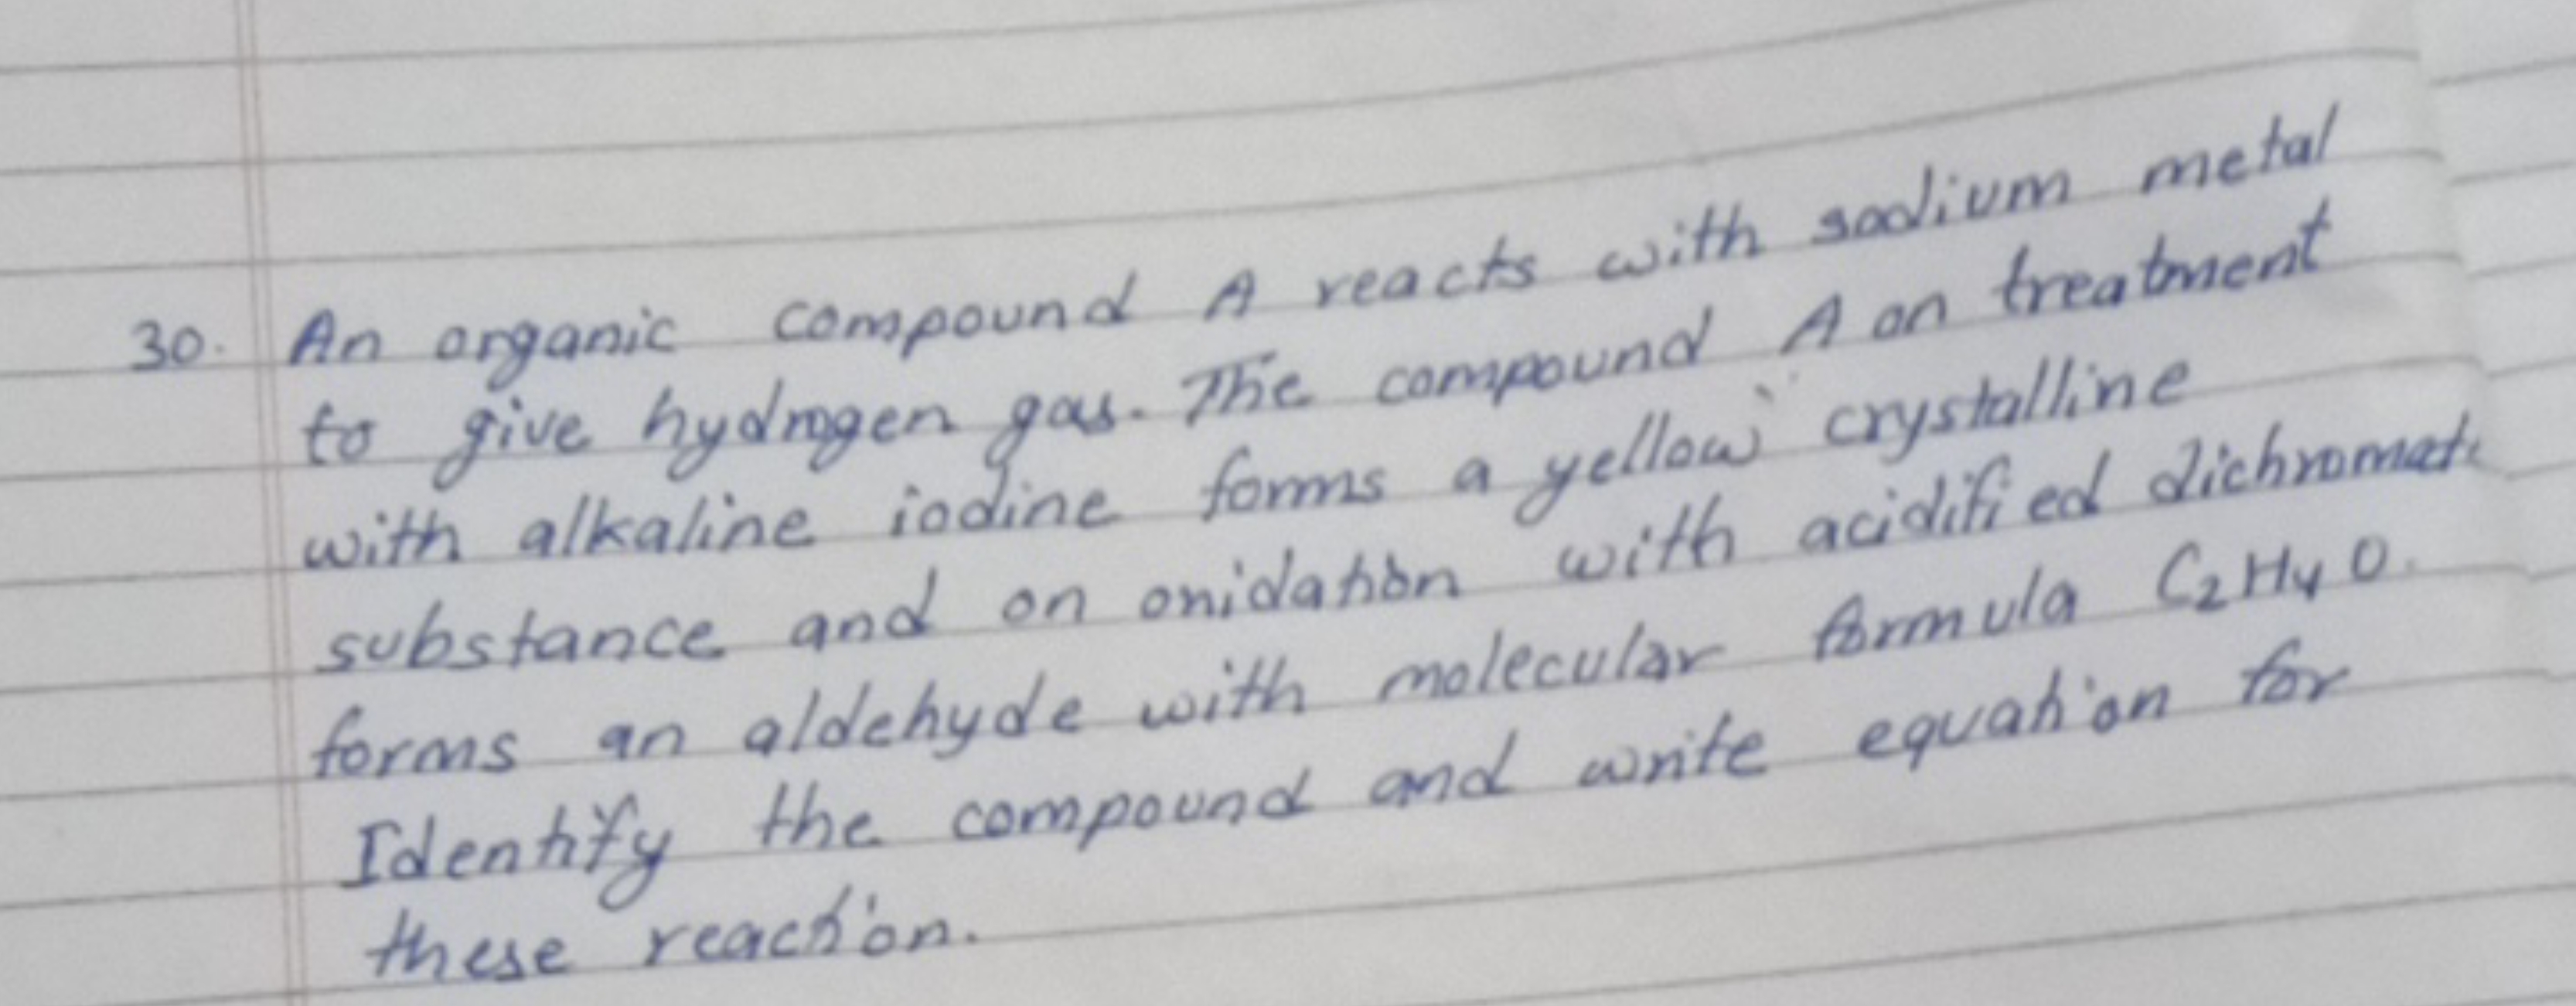 30. An organic compound A reacts with sodium metal
to give hydrogen gas. The compound A on treatment
with alkaline iodine forms a yellow crystalline
substance and on oxidation with acidified dichromat
forms an aldehyde with molecular formula C₂H₄O.
Identify the compound and write equation for
these reaction.